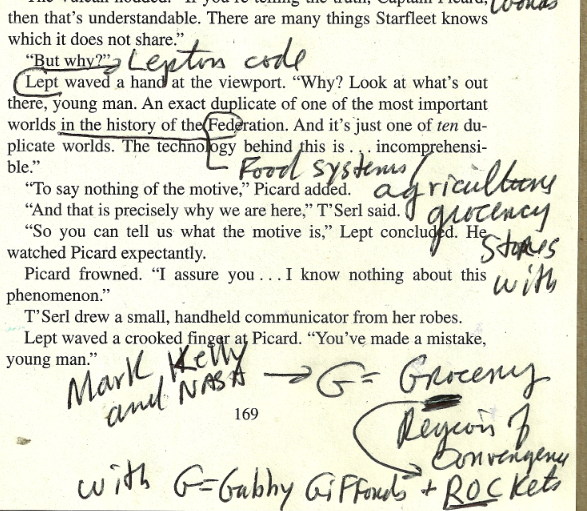 The Vulcan nodded. "If you're telling the truth, Captain Picard, words
then that's understandable. There are many things Starfleet knows
which it does not share."
"But why?" Lepton code
Lept waved a hand at the viewport. "Why? Look at what's out
there, young man. An exact duplicate of one of the most important
worlds in the history of the Federation. And it's just one of ten du-
plicate worlds. The technology behind this is . . . incomprehensi-
ble."
Food systems/
"To say nothing of the motive," Picard added. agriculture
"And that is precisely why we are here," T'Serl said. grocery
"So you can tell us what the motive is," Lept concluded. He
stores
watched Picard expectantly.
Picard frowned. "I assure you . . . I know nothing about this
with
phenomenon."
T'Serl drew a small, handheld communicator from her robes.
Lept waved a crooked finger at Picard. "You've made a mistake,
young man."
Mark Kelly
and NASA → G = Grocery
169
Region of
Convergence
with G=Gabby Giffords + ROCKets